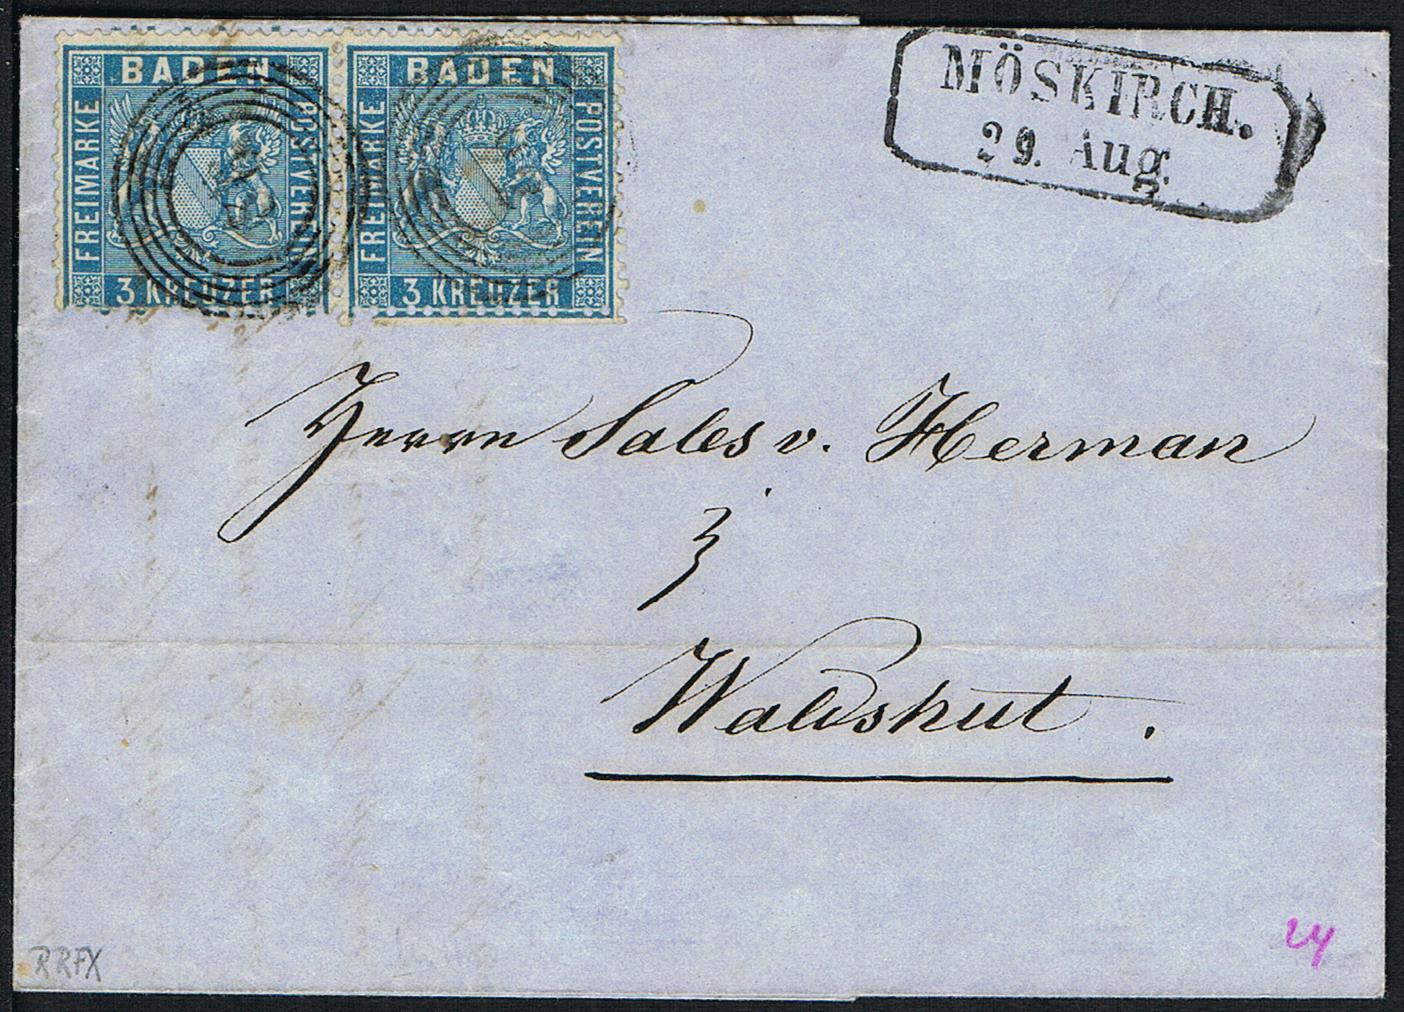 BADEN
FREIMARKE
POSTVEREIN
3 KREUZER
BADEN
FREIMARKE
POSTVEREIN
3 KREUZER
MÖSKIRCH.
29. Aug.
Herrn Sales v. Herman
Waldshut.
RRFX
24